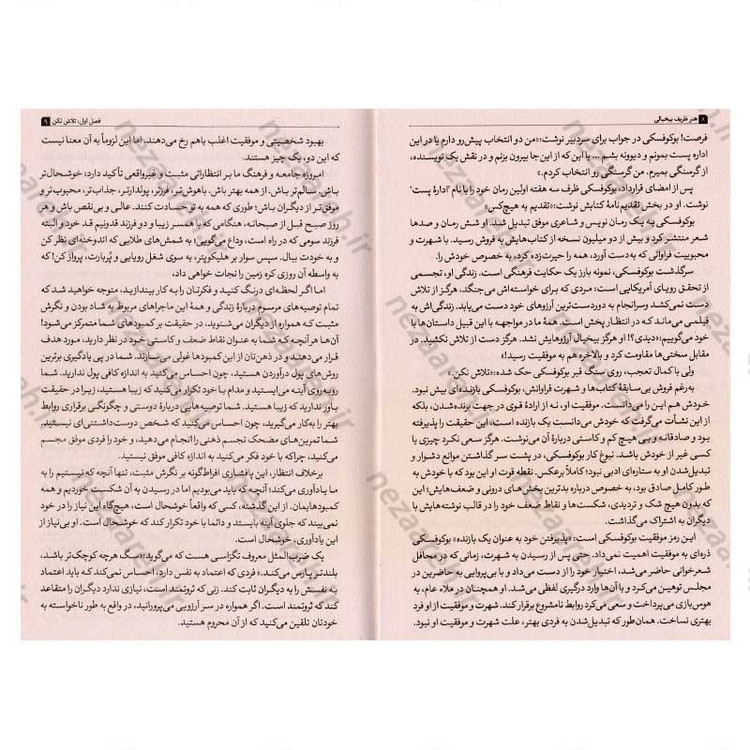 ۸ هنر ظریف بیخیالی
فرصت! بوکوفسکی در جواب برای سردبیر نوشت: «من دو انتخاب پیش‌رو دارم یا در این
اداره پست بمونم و دیوونه بشم ... یا این که از این‌جا بیرون بزنم و در نقش یک نویسنده،
از گرسنگی بمیرم. من گرسنگی رو انتخاب کردم.»
پس از امضای قرارداد، بوکوفسکی ظرف سه هفته اولین رمان خود را با نام "ادارهٔ پست"
نوشت. او در بخش تقدیم‌نامهٔ کتابش نوشت: «تقدیم به هیچ‌کس.»
بوکوفسکی به یک رمان نویس و شاعری موفق تبدیل شد. او شش رمان و صدها
شعر منتشر کرد و بیش از دو میلیون نسخه از کتاب‌هایش به فروش رسید. با شهرت و
محبوبیت فراوانی که به‌دست آورد، همه را حیرت‌زده کرد، به خصوص خودش را.
سرگذشت بوکوفسکی، نمونه بارز یک حکایت فرهنگی است. زندگی او، تجسمی
از تحقق رویای آمریکایی است: مردی که برای خواسته‌اش می‌جنگد، هرگز از تلاش
دست نمی‌کشد و سرانجام به دوردست‌ترین آرزوهای خود دست می‌یابد. زندگی‌اش به
فیلمی می‌ماند که در انتظار پخش است. همهٔ ما در مواجهه با این قبیل داستان‌ها با
خود می‌گوییم: «دیدی؟! او هرگز بیخیال آرزوهایش نشد. هرگز دست از تلاش نکشید. در
مقابل سختی‌ها مقاومت کرد و بالاخره هم به موفقیت رسید!»
ولی با کمال تعجب، روی سنگ قبر بوکوفسکی حک شده: «تلاش نکن.»
به‌رغم فروش بی‌سابقهٔ کتاب‌ها و شهرت فراوانش، بوکوفسکی بازنده‌ای بیش نبود.
خودش هم این را می‌دانست. موفقیت او، نه از ارادهٔ قوی در جهت برنده‌شدن، بلکه
از این نشأت می‌گرفت که خودش می‌دانست یک بازنده است، این حقیقت را پذیرفته
بود و صادقانه و بی هیچ کم و کاستی دربارهٔ آن می‌نوشت. هرگز سعی نکرد چیزی یا
کسی غیر از خودش باشد. نبوغ کار بوکوفسکی، در پشت سر گذاشتن موانع دشوار و
تبدیل‌شدن او به ستاره‌ای ادبی نبود؛ کاملاً برعکس. نقطه قوت او این بود که با خودش به
طور کامل صادق بود، به خصوص درباره بدترین بخش‌های درونی و ضعف‌هایش؛ این
که بدون هیچ شک و تردیدی، شکست‌ها و نقاط ضعف خود را در قالب نوشته‌هایش با
دیگران به اشتراک می‌گذاشت.
این رمز موفقیت بوکوفسکی است: «پذیرفتن خود به عنوان یک بازنده.» بوکوفسکی
ذره‌ای به موفقیت اهمیت نمی‌داد. حتی پس از رسیدن به شهرت، زمانی که در محافل
شعرخوانی حاضر می‌شد، اختیار خود را از دست می‌داد و با بی‌پروایی به حاضرین در
مجلس توهین می‌کرد و با آن‌ها وارد درگیری لفظی می‌شد. او همچنان در ملاء عام، به
هوس‌بازی می‌پرداخت و سعی می‌کرد روابط نامشروع برقرار کند. شهرت و موفقیت از او فرد
بهتری نساخت. همان‌طور که تبدیل‌شدن به فردی بهتر، علت شهرت و موفقیت او نبود.
فصل اول: تلاش نکن ۹
بهبود شخصیتی و موفقیت اغلب باهم رخ می‌دهند، اما این لزوماً به آن معنا نیست
که این دو، یک چیز هستند.
امروزه جامعه و فرهنگ ما بر انتظاراتی مثبت و غیرواقعی تأکید دارد: خوشحال‌تر
باش. سالم‌تر باش. از همه بهتر باش. باهوش‌تر، فرزتر، پولدارتر، جذاب‌تر، محبوب‌تر و
موفق‌تر از دیگران باش؛ طوری که همه به تو حسادت کنند. عالی و بی‌نقص باش و هر
روز صبح قبل از صبحانه، هنگامی که با همسر زیبا و دو فرزند قدونیم قد خود و البته
فرزند سومی که در راه است، وداع می‌گویی؛ به شمش‌های طلایی که اندوخته‌ای نظر کن
و به خودت ببال. سپس سوار بر هلیکوپتر، به سوی شغل رویایی و پُربارت، پرواز کن! که
به واسطه آن روزی کره زمین را نجات خواهی داد.
اما اگر لحظه‌ای درنگ کنید و فکرتان را به کار بیندازید، متوجه خواهید شد که
تمام توصیه‌های مرسوم دربارهٔ زندگی و همهٔ این ماجراهای مربوط به شاد بودن و نگرش
مثبت که همواره از دیگران می‌شنوید، در حقیقت بر کمبودهای شما متمرکز می‌شود!
آن‌ها هر آنچه که شما به عنوان نقاط ضعف و کاستی خود در نظر دارید، مورد هدف
قرار می‌دهند و در ذهن‌تان از این کمبودها غولی می‌سازند. شما در پی یادگیری برترین
روش‌های پول درآوردن هستید، چون احساس می‌کنید به اندازه کافی پول ندارید. شما
روبه‌روی آینه می‌ایستید و مدام با خود تکرار می‌کنید که زیبا هستید، زیرا در حقیقت
باور ندارید که زیبا هستید. شما توصیه‌هایی دربارهٔ دوستی و چگونگی برقراری روابط
بهتر را به‌کار می‌گیرید، چون احساس می‌کنید که شخص دوست‌داشتنی‌ای نیستید.
شما تمرین‌های مضحک تجسم ذهنی را انجام می‌دهید، و خود را فردی موفق مجسم
می‌کنید، چراکه با خود فکر می‌کنید به اندازه کافی موفق نیستید.
برخلاف انتظار، این پافشاری افراط‌گونه بر نگرش مثبت، تنها آنچه که نیستیم را به
ما یادآوری می‌کند؛ آنچه که باید می‌بودیم اما در رسیدن به آن شکست خوردیم و همه
کمبودهایمان. از این گذشته، کسی که واقعاً خوشحال است، هیچ‌گاه این نیاز را در خود
نمی‌بیند که جلوی آینه بایستد و دائما با خود تکرار کند که خوشحال است. او بی‌نیاز از
این یادآوری، خوشحال است.
یک ضرب‌المثل معروف تگزاسی هست که می‌گوید: «سگ هرچه کوچک‌تر باشد،
بلندتر پارس می‌کند.» فردی که اعتماد به نفس دارد، احساس نمی‌کند که باید اعتماد
به نفسش را به دیگران ثابت کند. زنی که ثروتمند است، نیازی ندارد دیگران را متقاعد
کند که ثروتمند است. اگر همواره در سر آرزویی می‌پرورانید، در واقع به طور ناخواسته به
خودتان تلقین می‌کنید که از آن محروم هستید.
nezaarsh.ir